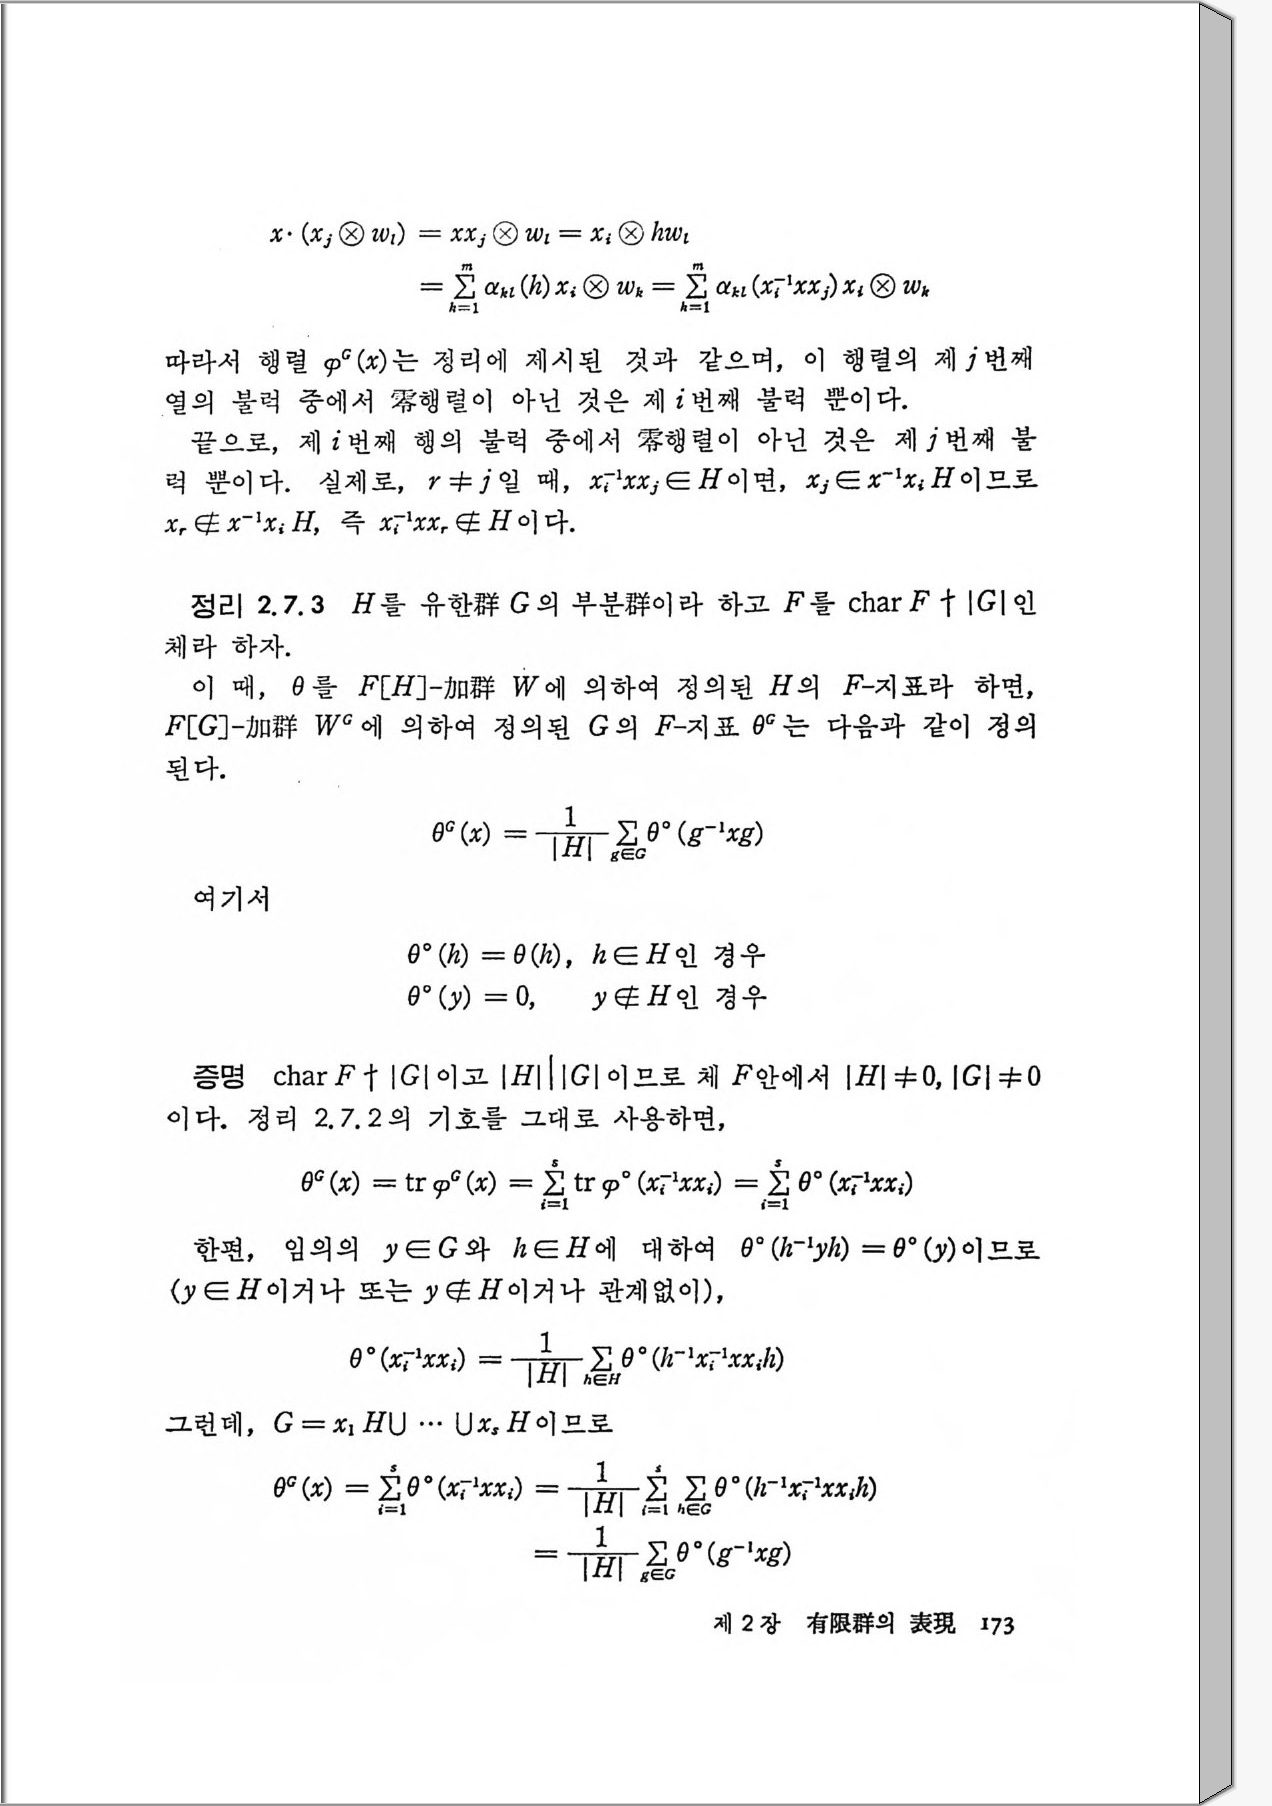 x· (x_j ⊗ w_l) = xx_j ⊗ w_l = x_i ⊗ hw_l
= \sum_{k=1}^{m} α_{kl}(h) x_i ⊗ w_k = \sum_{k=1}^{m} α_{kl}(x_i^{-1}xx_j) x_i ⊗ w_k
따라서 행렬 φ^G(x)는 정리에 제시된 것과 같으며, 이 행렬의 제 j 번째
열의 블럭 중에서 零행렬이 아닌 것은 제 i 번째 블럭 뿐이다.
끝으로, 제 i 번째 행의 블럭 중에서 零행렬이 아닌 것은 제 j 번째 블
럭 뿐이다. 실제로, r ≠ j 일 때, x_i^{-1}xx_j ∈ H이면, x_j ∈ x^{-1}x_i H이므로
x_r ∉ x^{-1}x_i H, 즉 x_i^{-1}xx_r ∉ H이다.
정리 2.7.3 H를 유한群 G의 부분群이라 하고 F를 char F ∤ |G|인
체라 하자.
이 때, θ를 F[H]-加群 W에 의하여 정의된 H의 F-지표라 하면,
F[G]-加群 W^G에 의하여 정의된 G의 F-지표 θ^G는 다음과 같이 정의
된다.
θ^G(x) = \frac{1}{|H|} \sum_{g∈G} θ°(g^{-1}xg)
여기서
θ°(h) = θ(h), h ∈ H인 경우
θ°(y) = 0, y ∉ H인 경우
증명 char F ∤ |G|이고 |H| | |G|이므로 체 F안에서 |H| ≠ 0, |G| ≠ 0
이다. 정리 2.7.2의 기호를 그대로 사용하면,
θ^G(x) = tr φ^G(x) = \sum_{i=1}^{s} tr φ°(x_i^{-1}xx_i) = \sum_{i=1}^{s} θ°(x_i^{-1}xx_i)
한편, 임의의 y ∈ G와 h ∈ H에 대하여 θ°(h^{-1}yh) = θ°(y)이므로
(y ∈ H이거나 또는 y ∉ H이거나 관계없이),
θ°(x_i^{-1}xx_i) = \frac{1}{|H|} \sum_{h∈H} θ°(h^{-1}x_i^{-1}xx_ih)
그런데, G = x_1 H∪ ··· ∪x_s H이므로
θ^G(x) = \sum_{i=1}^{s} θ°(x_i^{-1}xx_i) = \frac{1}{|H|} \sum_{i=1}^{s} \sum_{h∈G} θ°(h^{-1}x_i^{-1}xx_ih)
= \frac{1}{|H|} \sum_{g∈G} θ°(g^{-1}xg)
제 2 장 有限群의 表現 173